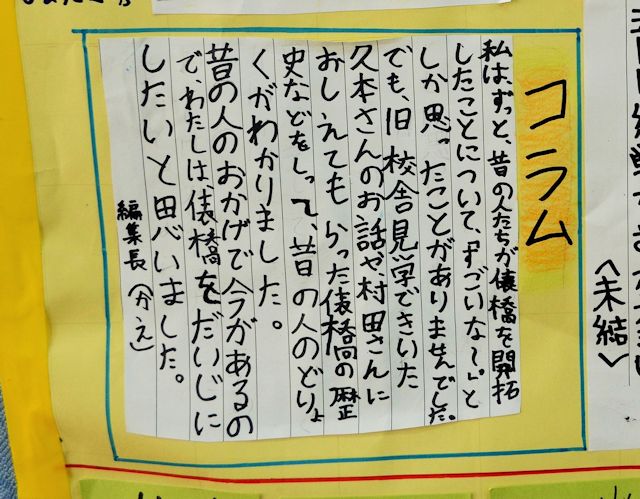 コラム
私は、ずっと、昔の人たちが俵橋を開拓
したことについて、「すごいな〜。」と
しか思ったことがありませんでした。
でも、旧校舎見学できいた
久本さんのお話や村田さんに
おしえてもらった俵橋の歴
史などをしって、昔の人のどりょ
くがわかりました。
昔の人のおかげで今があるの
で、わたしは俵橋をだいじに
したいと思いました。
編集長(かえ)
〈未結〉